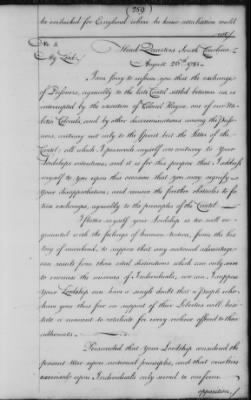 259
be contended for England when he knew reconciliation would
No. 5
Head Quarters South Carolina
August 26th 1781
My Lord,
I am sorry to inform you that the exchange
of Prisoners, agreeably to the late Cartel settled between us, is
interrupted by the execution of Colonel Hayne, one of our
Colonels, and by other discriminations among the Pris-
oners, contrary not only to the Spirit but the letter of the
Cartel; all which I persuade myself are contrary to Your
Lordships intentions, and it is for this purpose that I address
myself to you upon this occasion that you may signify
Your disapprobation; and remove the further obstacles to fu-
ture exchanges, agreeably to the principles of the Cartel
I flatter myself your Lordship is too well ac-
quainted with the feelings of human Nature, from the his-
tory of mankind, to suppose that any national advantage
can result from those cruel distinctions which can only serve
to increase the miseries of Individuals, nor can I suppose
Your Lordship can have a single doubt that a People who
have gone thus far in support of their Liberties will hesi-
tate a moment to retaliate for every violence offered to their
adherents.
Persuaded that Your Lordship considered the
present War upon national principles, and that
upon Individuals only served to confirm
opposition